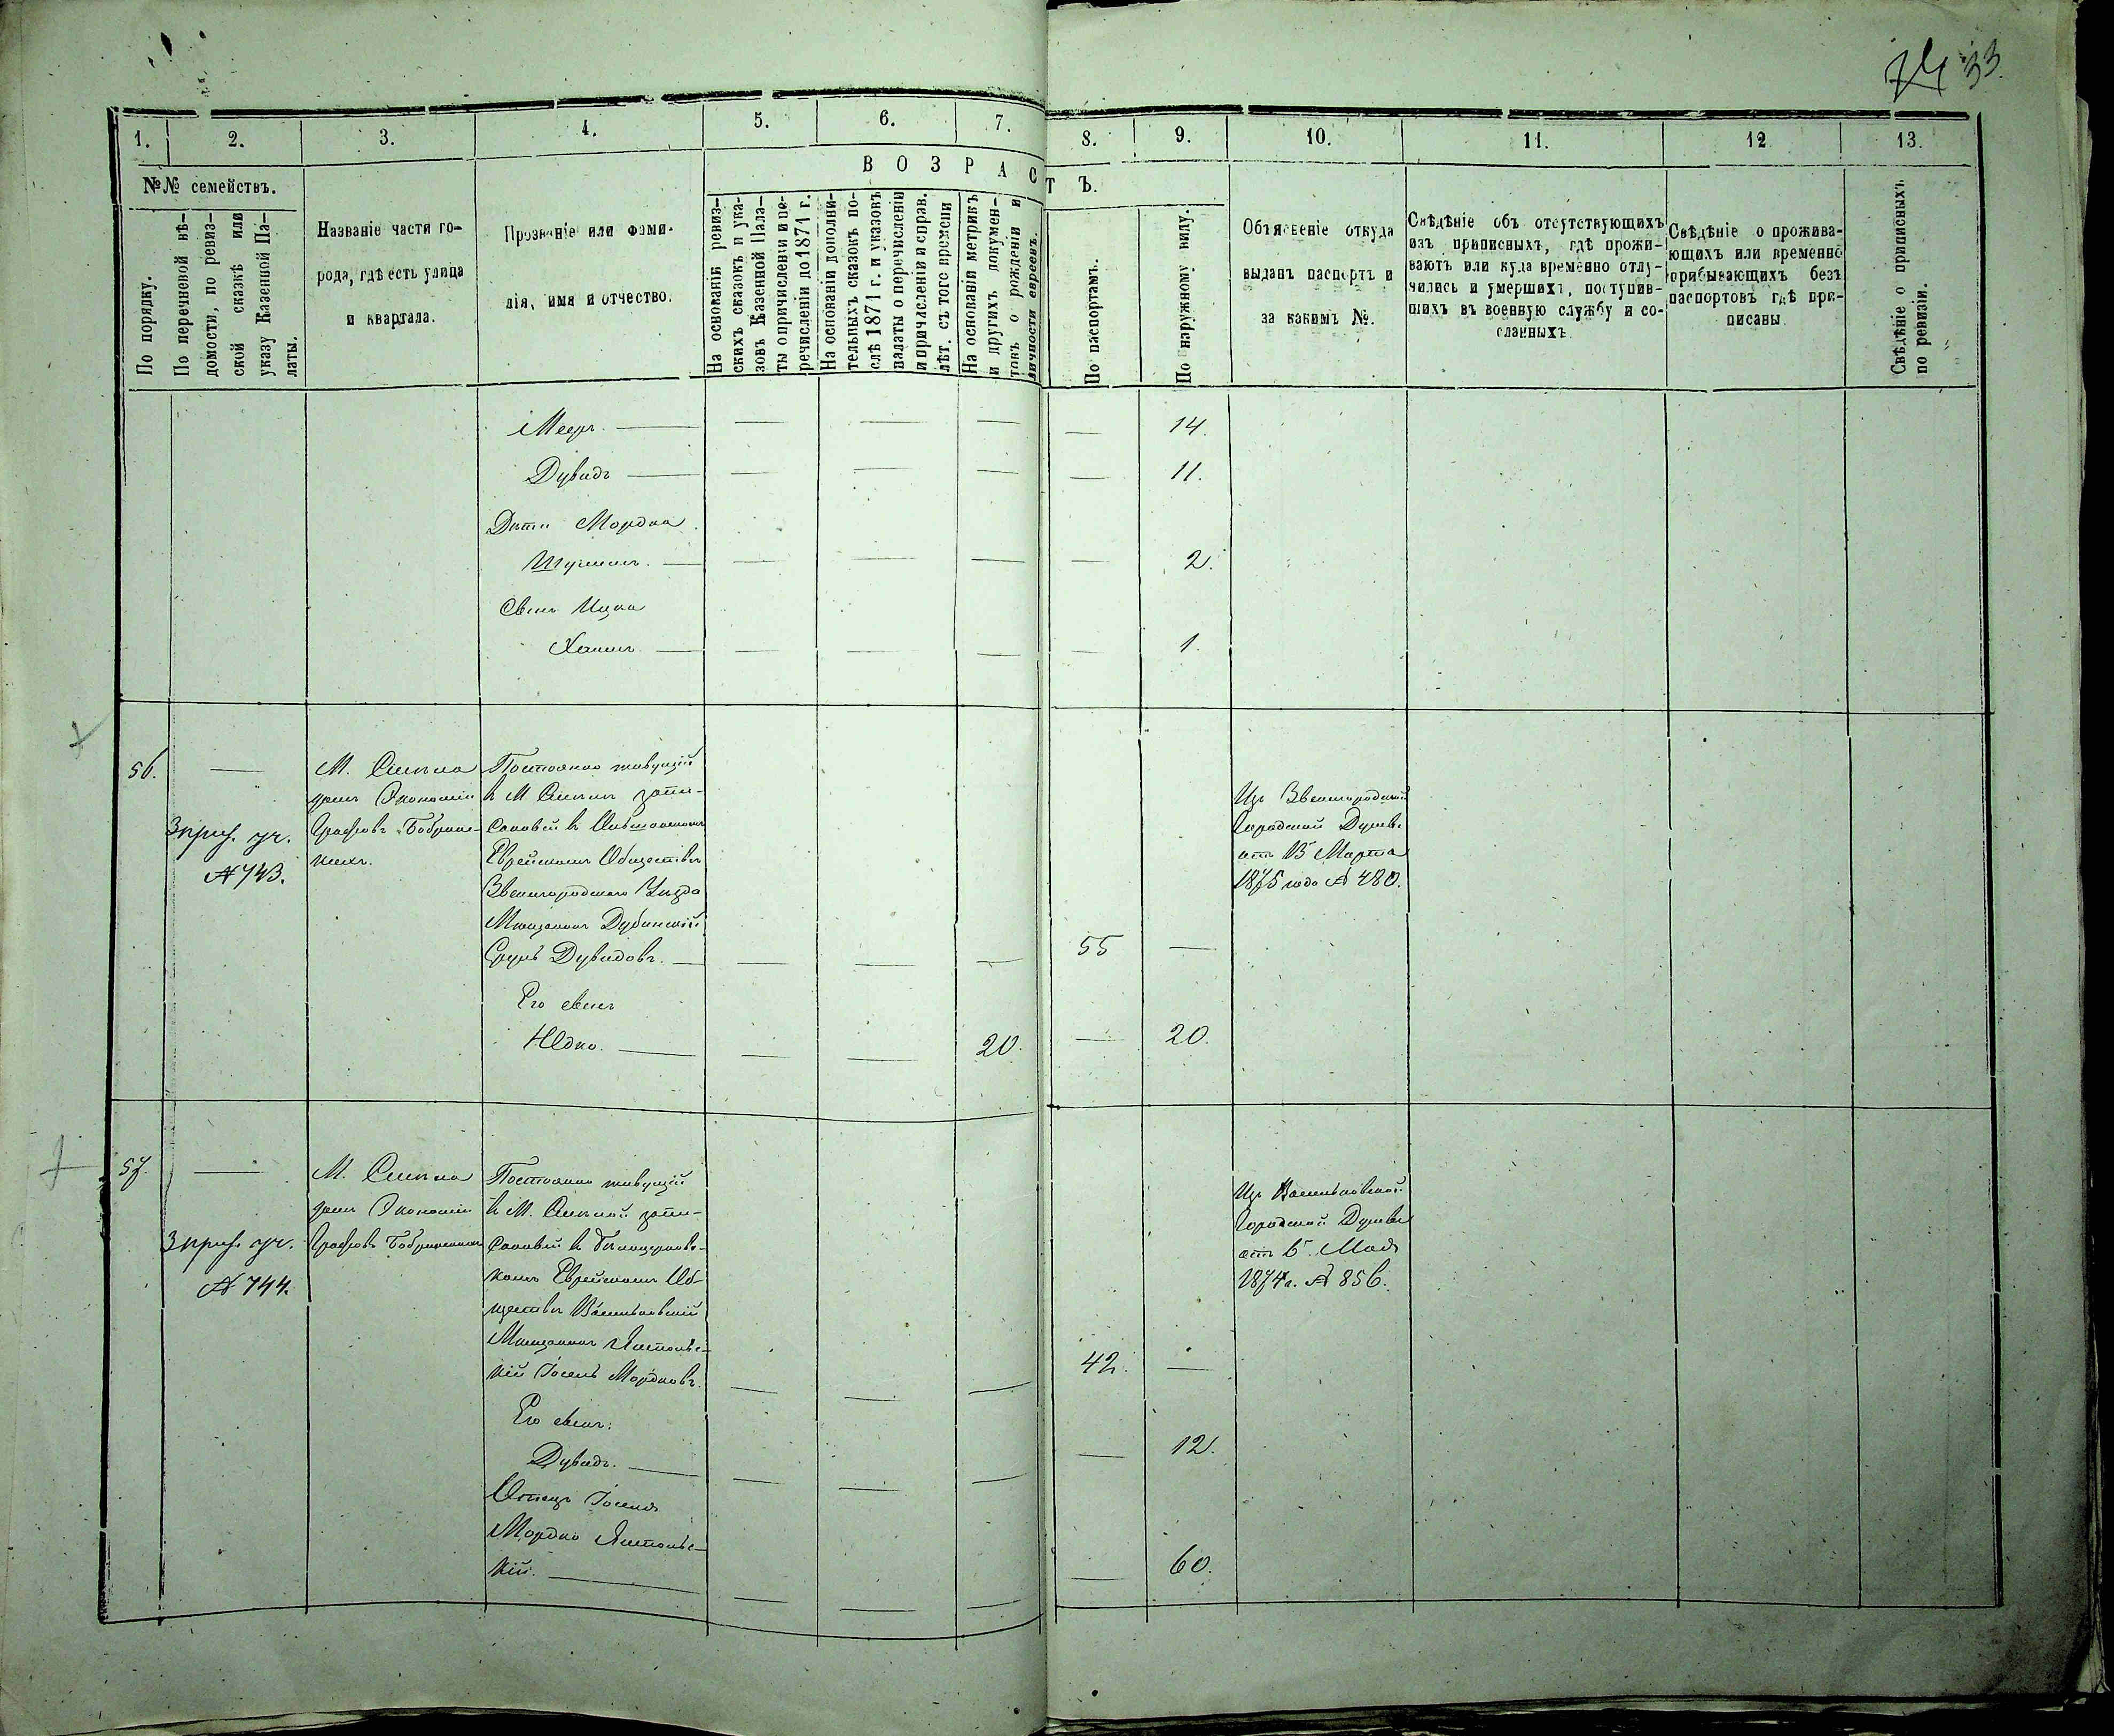 33
1. 2. 3. 4. 5. 6. 7. 8. 9. 10. 11. 12 13.
№№ семействъ.
ВОЗРАСТЪ.
По порядку.
По перечневой вѣ-
домости, по ревиз-
ской сказкѣ или
указу Казенной Па-
латы.
Названіе части го-
рода, гдѣ есть улица
и квартала.
Прозваніе или фами-
лія, имя и отчество.
На основаніи ревиз-
скихъ сказокъ и ука-
зовъ Казенной Пала-
ты о причисленіи и пе-
речисленіи до 1871 г.
На основаніи дополни-
тельныхъ сказокъ по-
слѣ 1871 г. и указовъ
палаты о перечисленіи
и причисленіи и справ.
лѣт. съ того времени
На основаніи метрикъ
и другихъ докумен-
товъ о рожденіи и
личности евреевъ.
По паспортамъ.
По наружному виду.
Объясненіе откуда
выданъ паспортъ и
за какимъ №.
Свѣдѣніе объ отсутствующихъ
изъ приписныхъ, гдѣ прожи-
ваютъ или куда временно отлу-
чились и умершихъ, поступив-
шихъ въ военную службу и со-
сланныхъ.
Свѣдѣніе о прожива-
ющихъ или временно
прибывающихъ безъ
паспортовъ гдѣ при-
писаны
Свѣдѣніе о приписныхъ
по ревизіи.
Меер. — — — — — 14.
Дувидъ — — — — — 11.
Дѣти Мордка
— — — — — 2.
Сынъ Ицка
— — — — — 1.
56. —
3 приз. уч.
№ 743.
М. Смѣла
домъ Экономіи
Графовъ Бобринс-
кихъ.
Постоянно живущій
в М. Смѣлѣ запи-
санный в
Еврейскомъ Обществѣ
Звенигородскаго Уѣзда
Мѣщанинъ Дубинскій
Сруль Дувидовъ. — — — — 55 —
Его сынъ
— — — 20. — 20.
Изъ Звенигородской
Городской Думы
отъ 13 Марта
1875 года № 480.
57. —
3 приз. уч.
№ 744.
М. Смѣла
домъ Экономіи
Графовъ Бобринскихъ
Постоянно живущій
в М. Смѣлой запи-
санный в Бѣлоцерковс-
комъ Еврейскомъ Об-
ществѣ Васильковскій
Мѣщанинъ
кій Іосель Мордковъ. — — — 42. —
Его сынъ:
Дувидъ. — — — — — 12.
Отецъ Іоселя
Мордко
кій. — — — — — 60.
Изъ Васильковской
Городской Думы
отъ 6 Мая
1874 г. № 856.